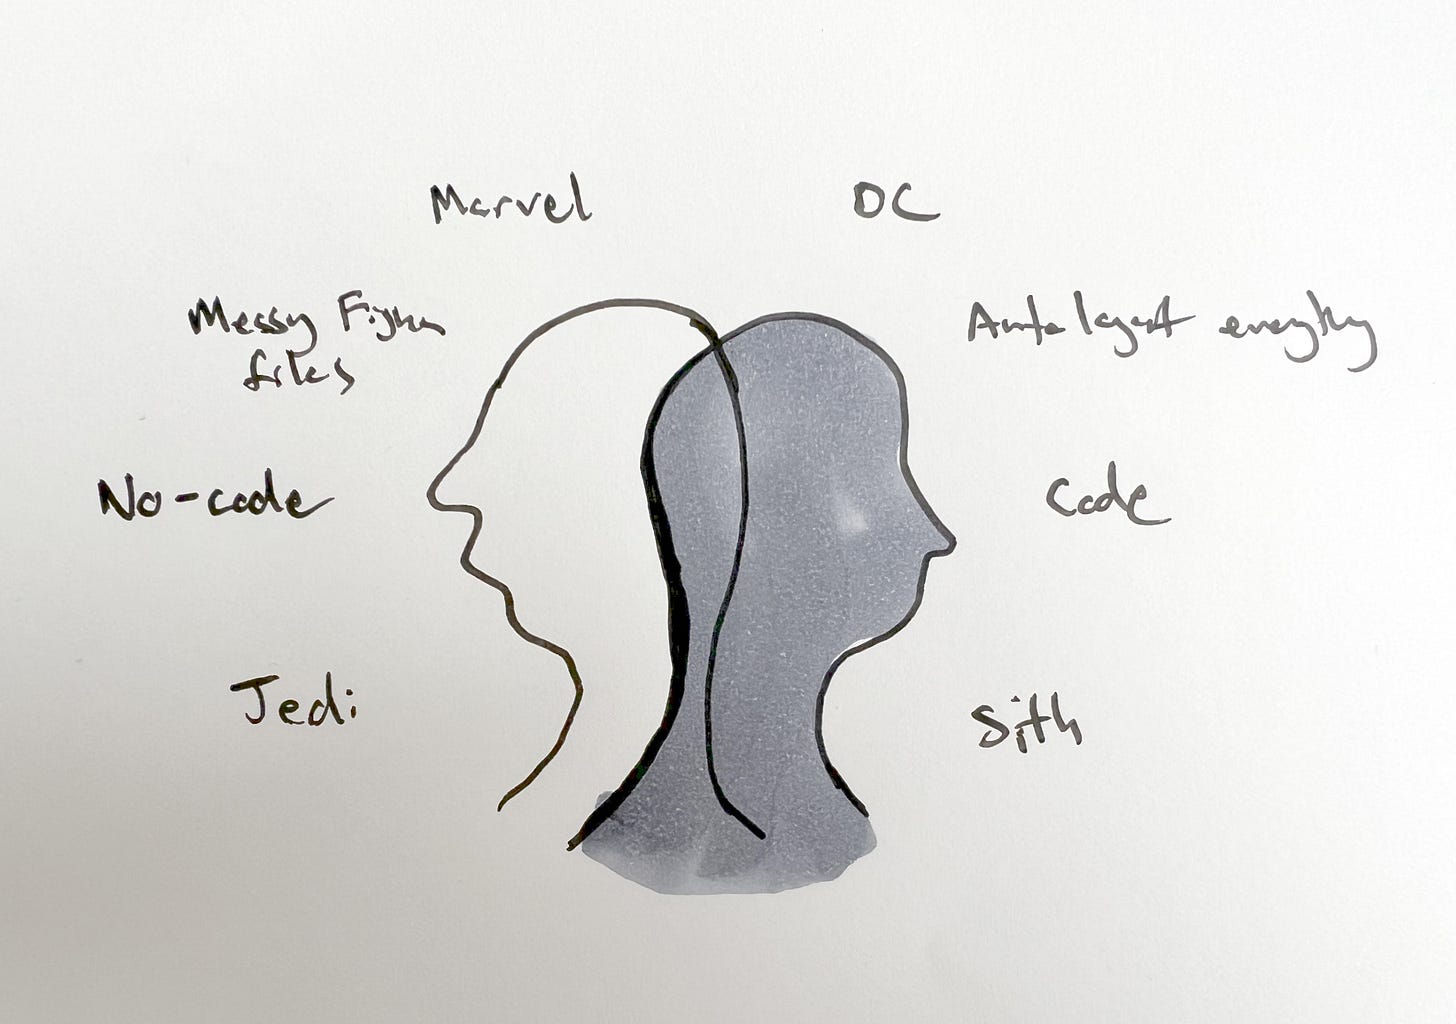 Marvel
DC
Messy Figma
files
Auto layout everything
No-code
Code
Jedi
Sith